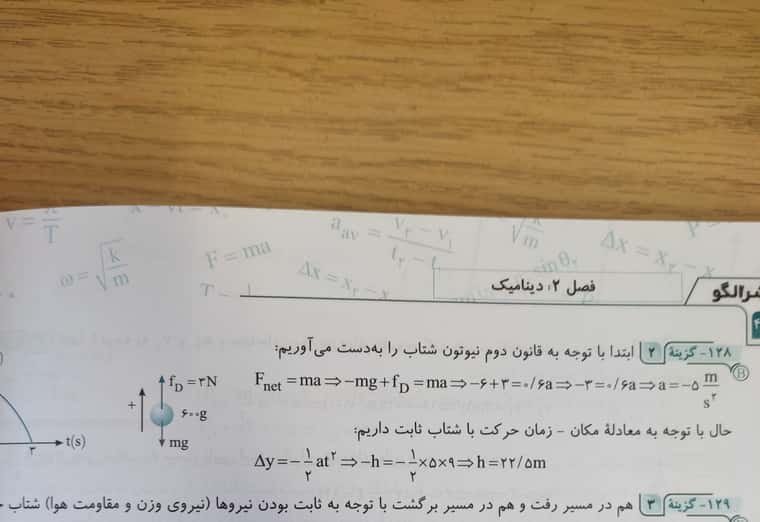 F = ma
فصل ۲: دینامیک
۱۲۸- گزینهٔ ۲ ابتدا با توجه به قانون دوم نیوتون شتاب را به‌دست می‌آوریم:
F_net = ma ⇒ −mg + f_D = ma ⇒ −۶ + ۳ = ۰/۶a ⇒ −۳ = ۰/۶a ⇒ a = −۵ m/s^۲
f_D = ۳N
+
۶۰۰g
mg
t(s)
۳
حال با توجه به معادلهٔ مکان - زمان حرکت با شتاب ثابت داریم:
Δy = −۱/۲ at^۲ ⇒ −h = −۱/۲ × ۵ × ۹ ⇒ h = ۲۲/۵m
۱۲۹- گزینهٔ ۳ هم در مسیر رفت و هم در مسیر برگشت با توجه به ثابت بودن نیروها (نیروی وزن و مقاومت هوا) شتاب